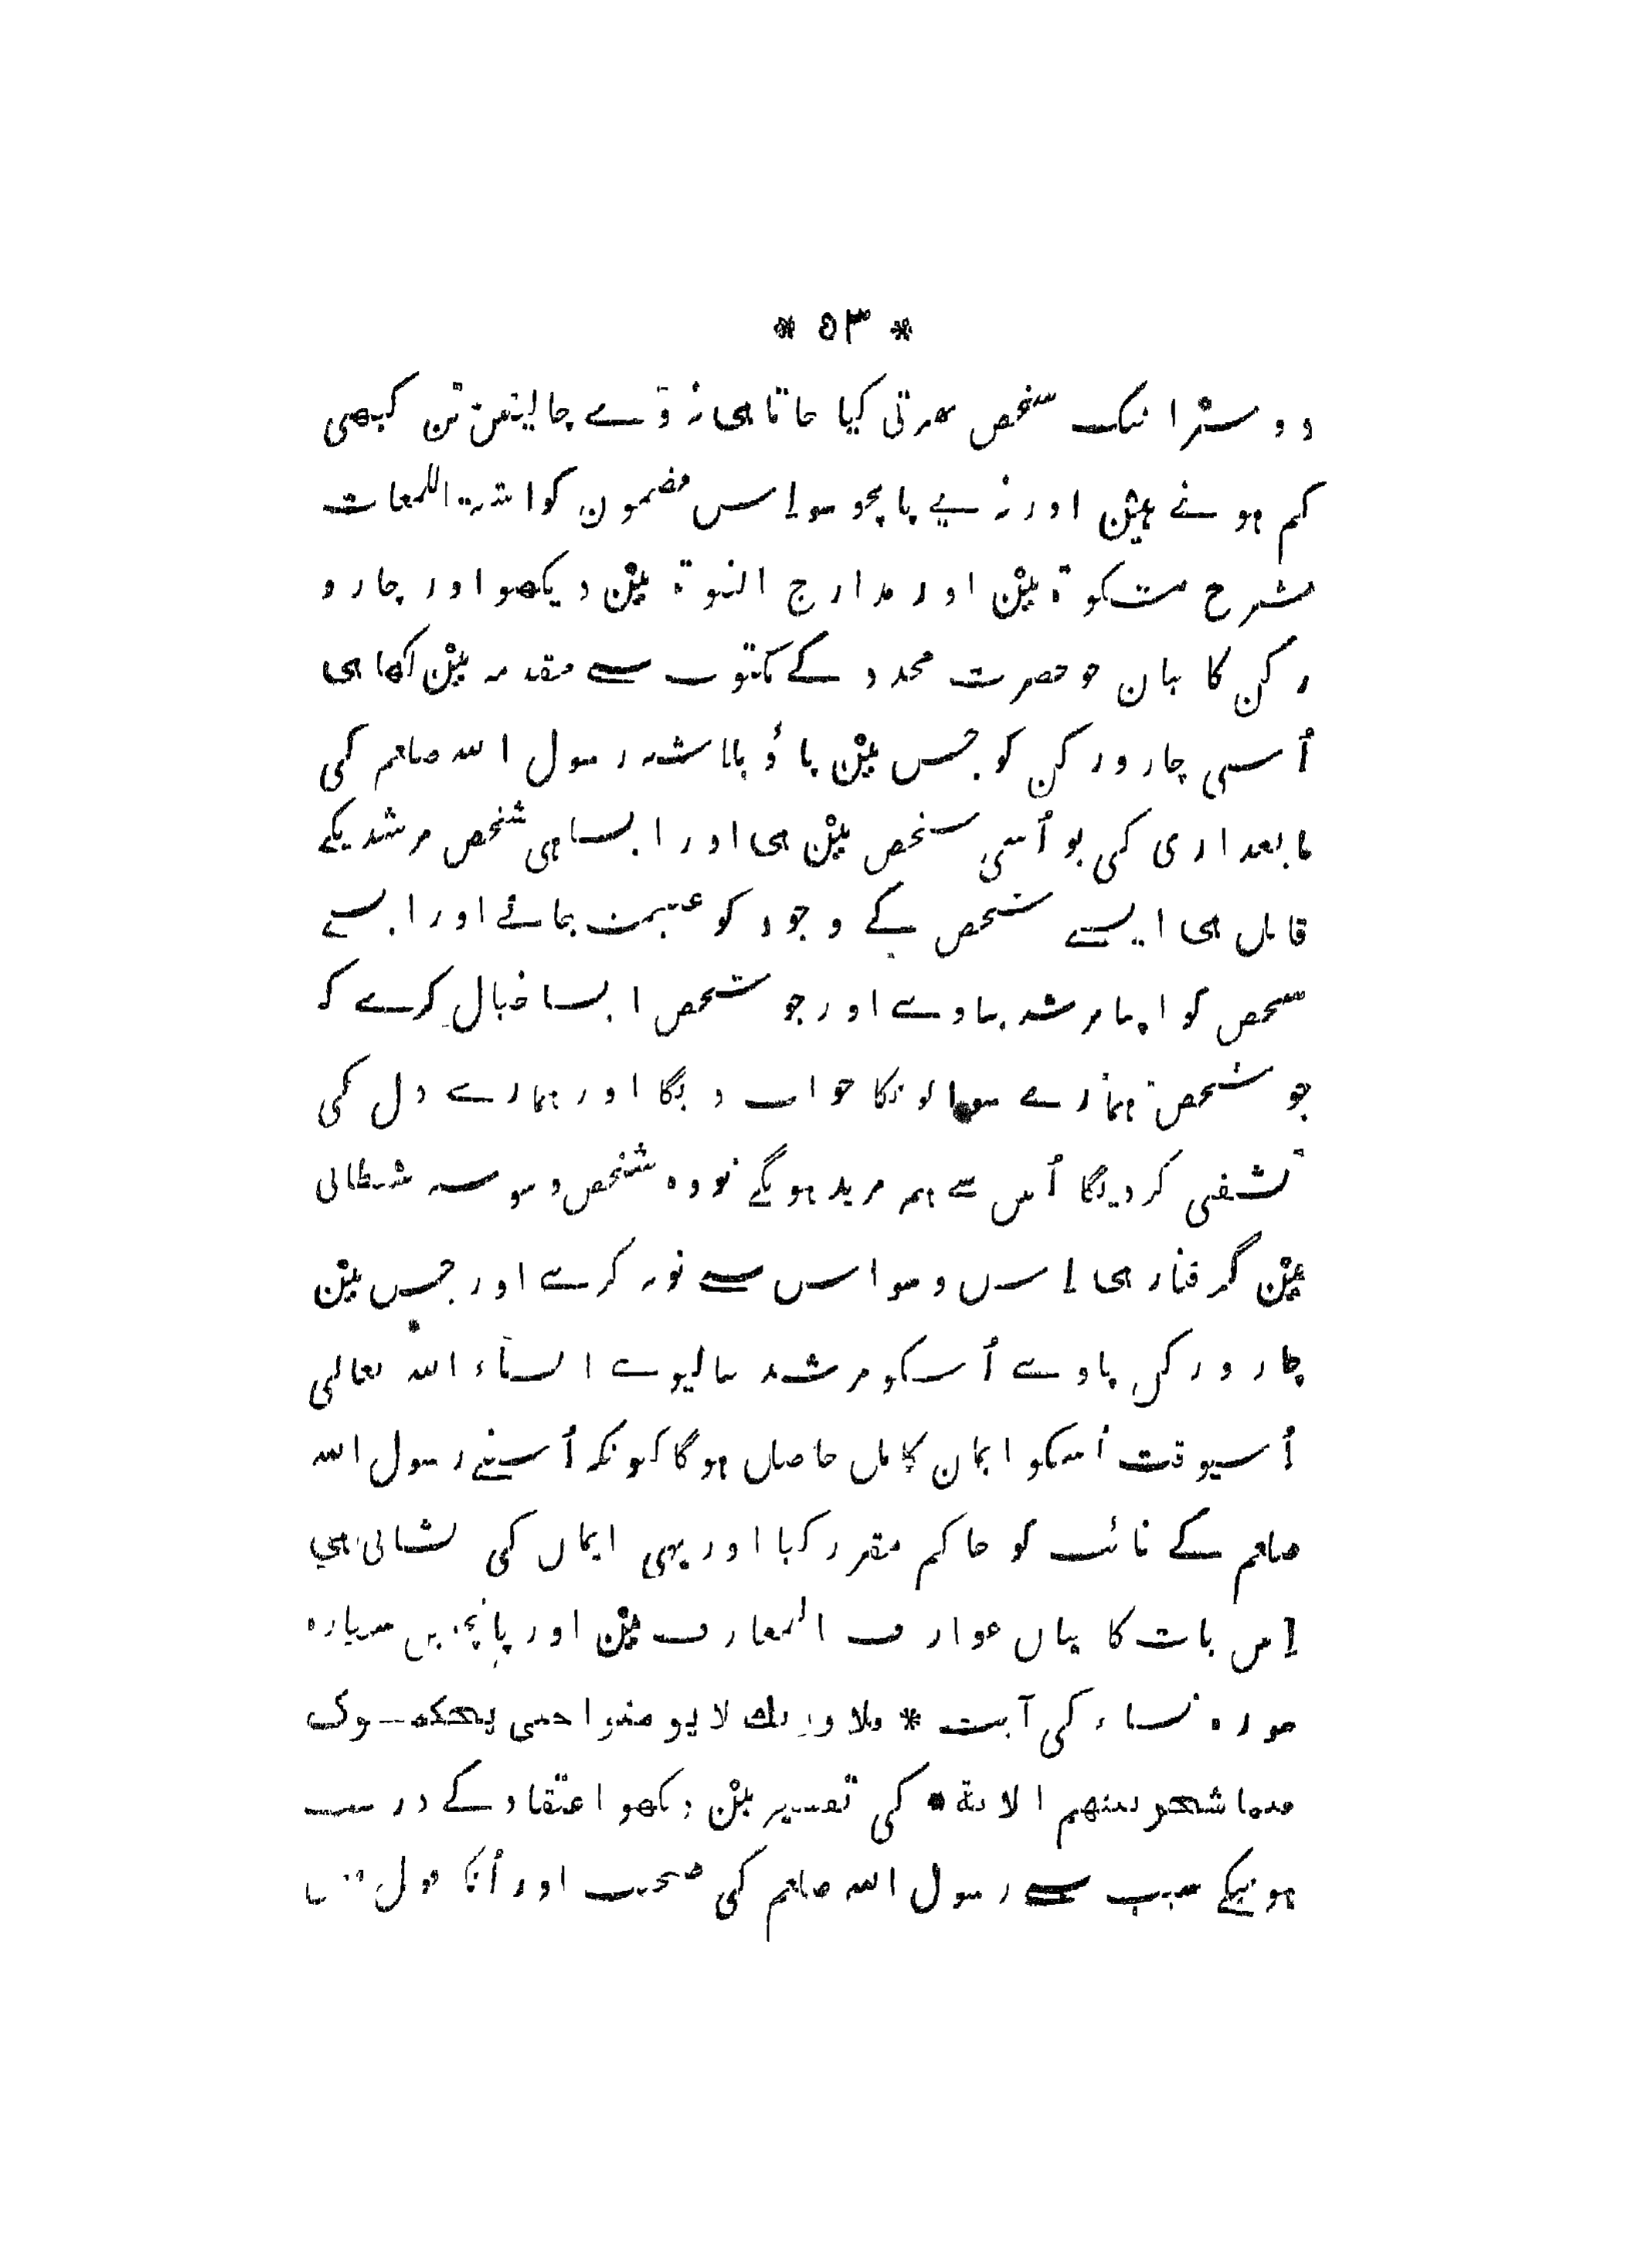 * ۵۳ *
دوسرا ایک شخص بھرتی کیا جاتا ہی نہ وے چالیس تن کبھی
کم ہوتے ہین اور نہ یے پانچو سو اِس مضمون کو اشعۃ اللمعات
شرح مشکوۃ مین اور مدارج النبوۃ مین دیکھو اور چارو
رکن کا بیان جو حضرت مجدد کے مکتوب سے مقدمہ مین لکھا ہی
اُسی چارو رکن کو جس مین پاؤ بلاشبہ رسول اللہ صلعم کی
تابعداری کی بو اُسی شخص مین ہی اور ایسا ہی شخص مرشدیکے
قابل ہی ایسے شخص کے وجود کو غنیمت جانے اور ایسے
شخص کو اپنا مرشد بناوے اور جو شخص ایسا خیال کرے کہ
جو شخص ہمارے سوالونکا جواب دیگا اور ہمارے دل کی
تشفی کردیگا اُس سے ہم مرید ہونگے تو وہ شخص وسوسہ شیطانی
مین گرفتار ہی اِس وسواس سے توبہ کرے اور جس مین
چارو رکن پاوے اُسکو مرشد بنالیوے انشاء اللہ تعالی
اُسیوقت اُسکو ایمان کامل حاصل ہوگا کیونکہ اُسنے رسول اللہ
صلعم کے نائب کو حاکم مقرر کیا اور یہی ایمان کی نشانی ہی
اِس بات کا بیان عوارف المعارف مین اور پانچویں سیپارہ
سورہ نساء کی آیت * فلا وربك لا یومنوا حتی یحکموك
فیما شجر بینهم الایة * کی تفسیر مین دیکھو اعتقاد کے درست
ہونیکے سبب سے رسول اللہ صلعم کی صحبت اور اُنکا